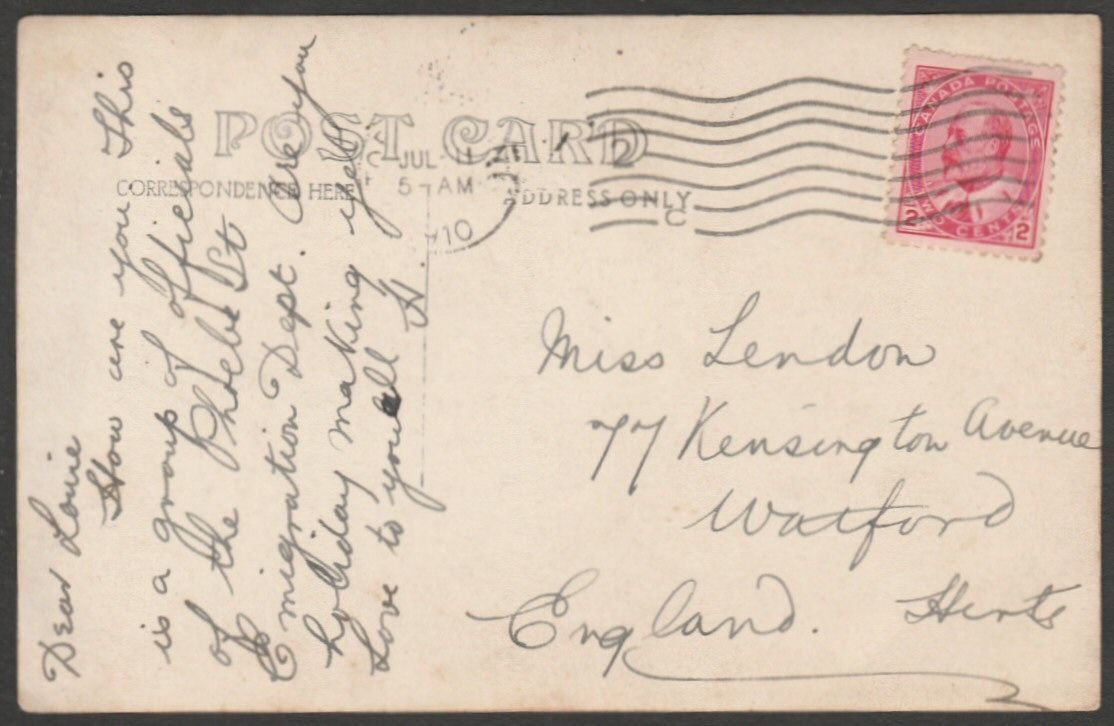 POST CARD
CORRESPONDENCE HERE
ADDRESS ONLY
JUL 11
5-AM
10
C
CANADA POSTAGE
TWO CENTS
2 2
Dear Louie
How are you. This
is a group of officials
of the Phoebe St
Emigration Dept. Are you
holiday making yet
Love to you all H.
Miss Lendon
77 Kensington Avenue
Watford
England. Herts